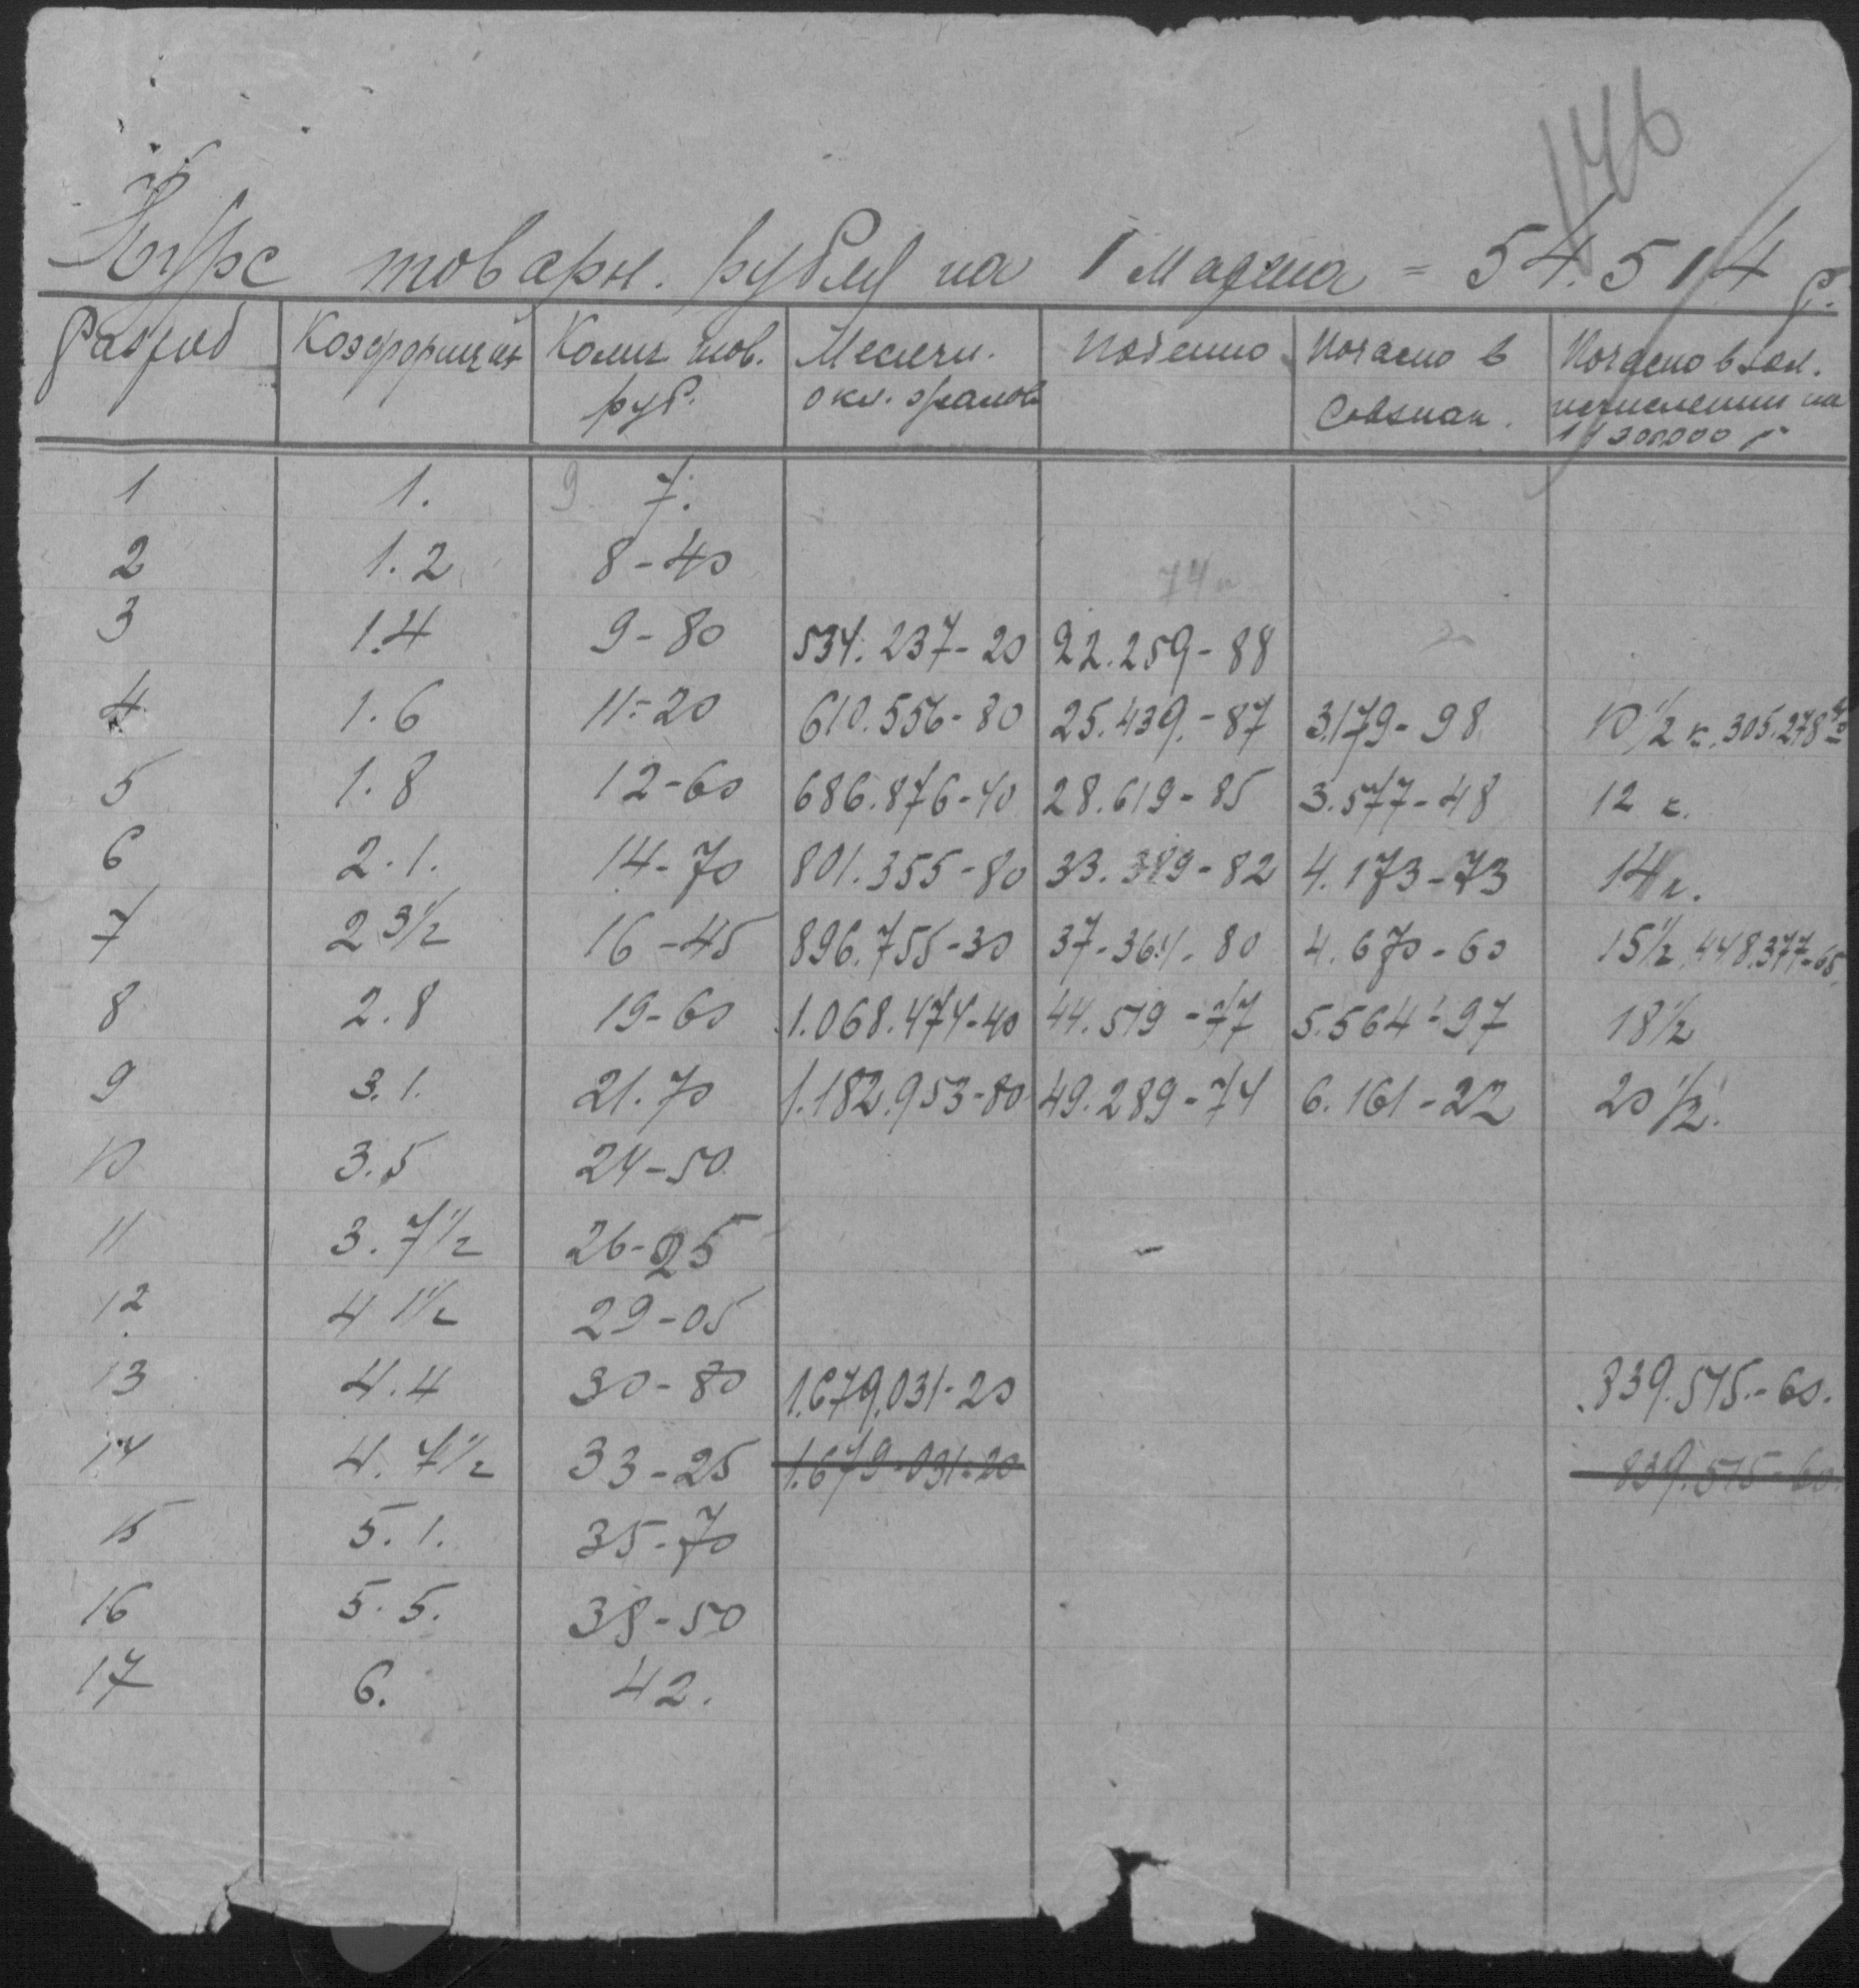 146
Курс товарн. рубля на 1 Марта = 54.514 р.
Разряд Коэффициен Колич тов. руб. Месячн. окл. Поденно Почасно в Совзнак. Почасно в зол. исчислении на 1/300000 р
1 1. 9 7.
2 1.2 8-40 74
3 1.4 9-80 534.237-20 22.259-88
4 1.6 11-20 610.556-80 25.439-87 3179-98 10 1/2 к. 305.278 40
5 1.8 12-60 686.876-40 28.619-85 3.577-48 12 к.
6 2.1. 14-70 801.355-80 33.389-82 4.173-73 14 к.
7 2 3 1/2 16-45 896.755-30 37-364-80 4.670-60 15 1/2 448.377-65
8 2.8 19-60 1.068.474-40 44.519-77 5.564-97 18 1/2
9 3.1. 21.70 1.182.953-80 49.289-74 6.161-22 20 1/2.
10 3.5 24-50
11 3.7 1/2 26-25
12 4 1 1/2 29-05
13 4.4 30-80 1.679.031-20 839.515-60.
14 4.7 1/2 33-25 1.679-031-20 839.515-60
15 5.1. 35-70
16 5.5. 38-50
17 6. 42.